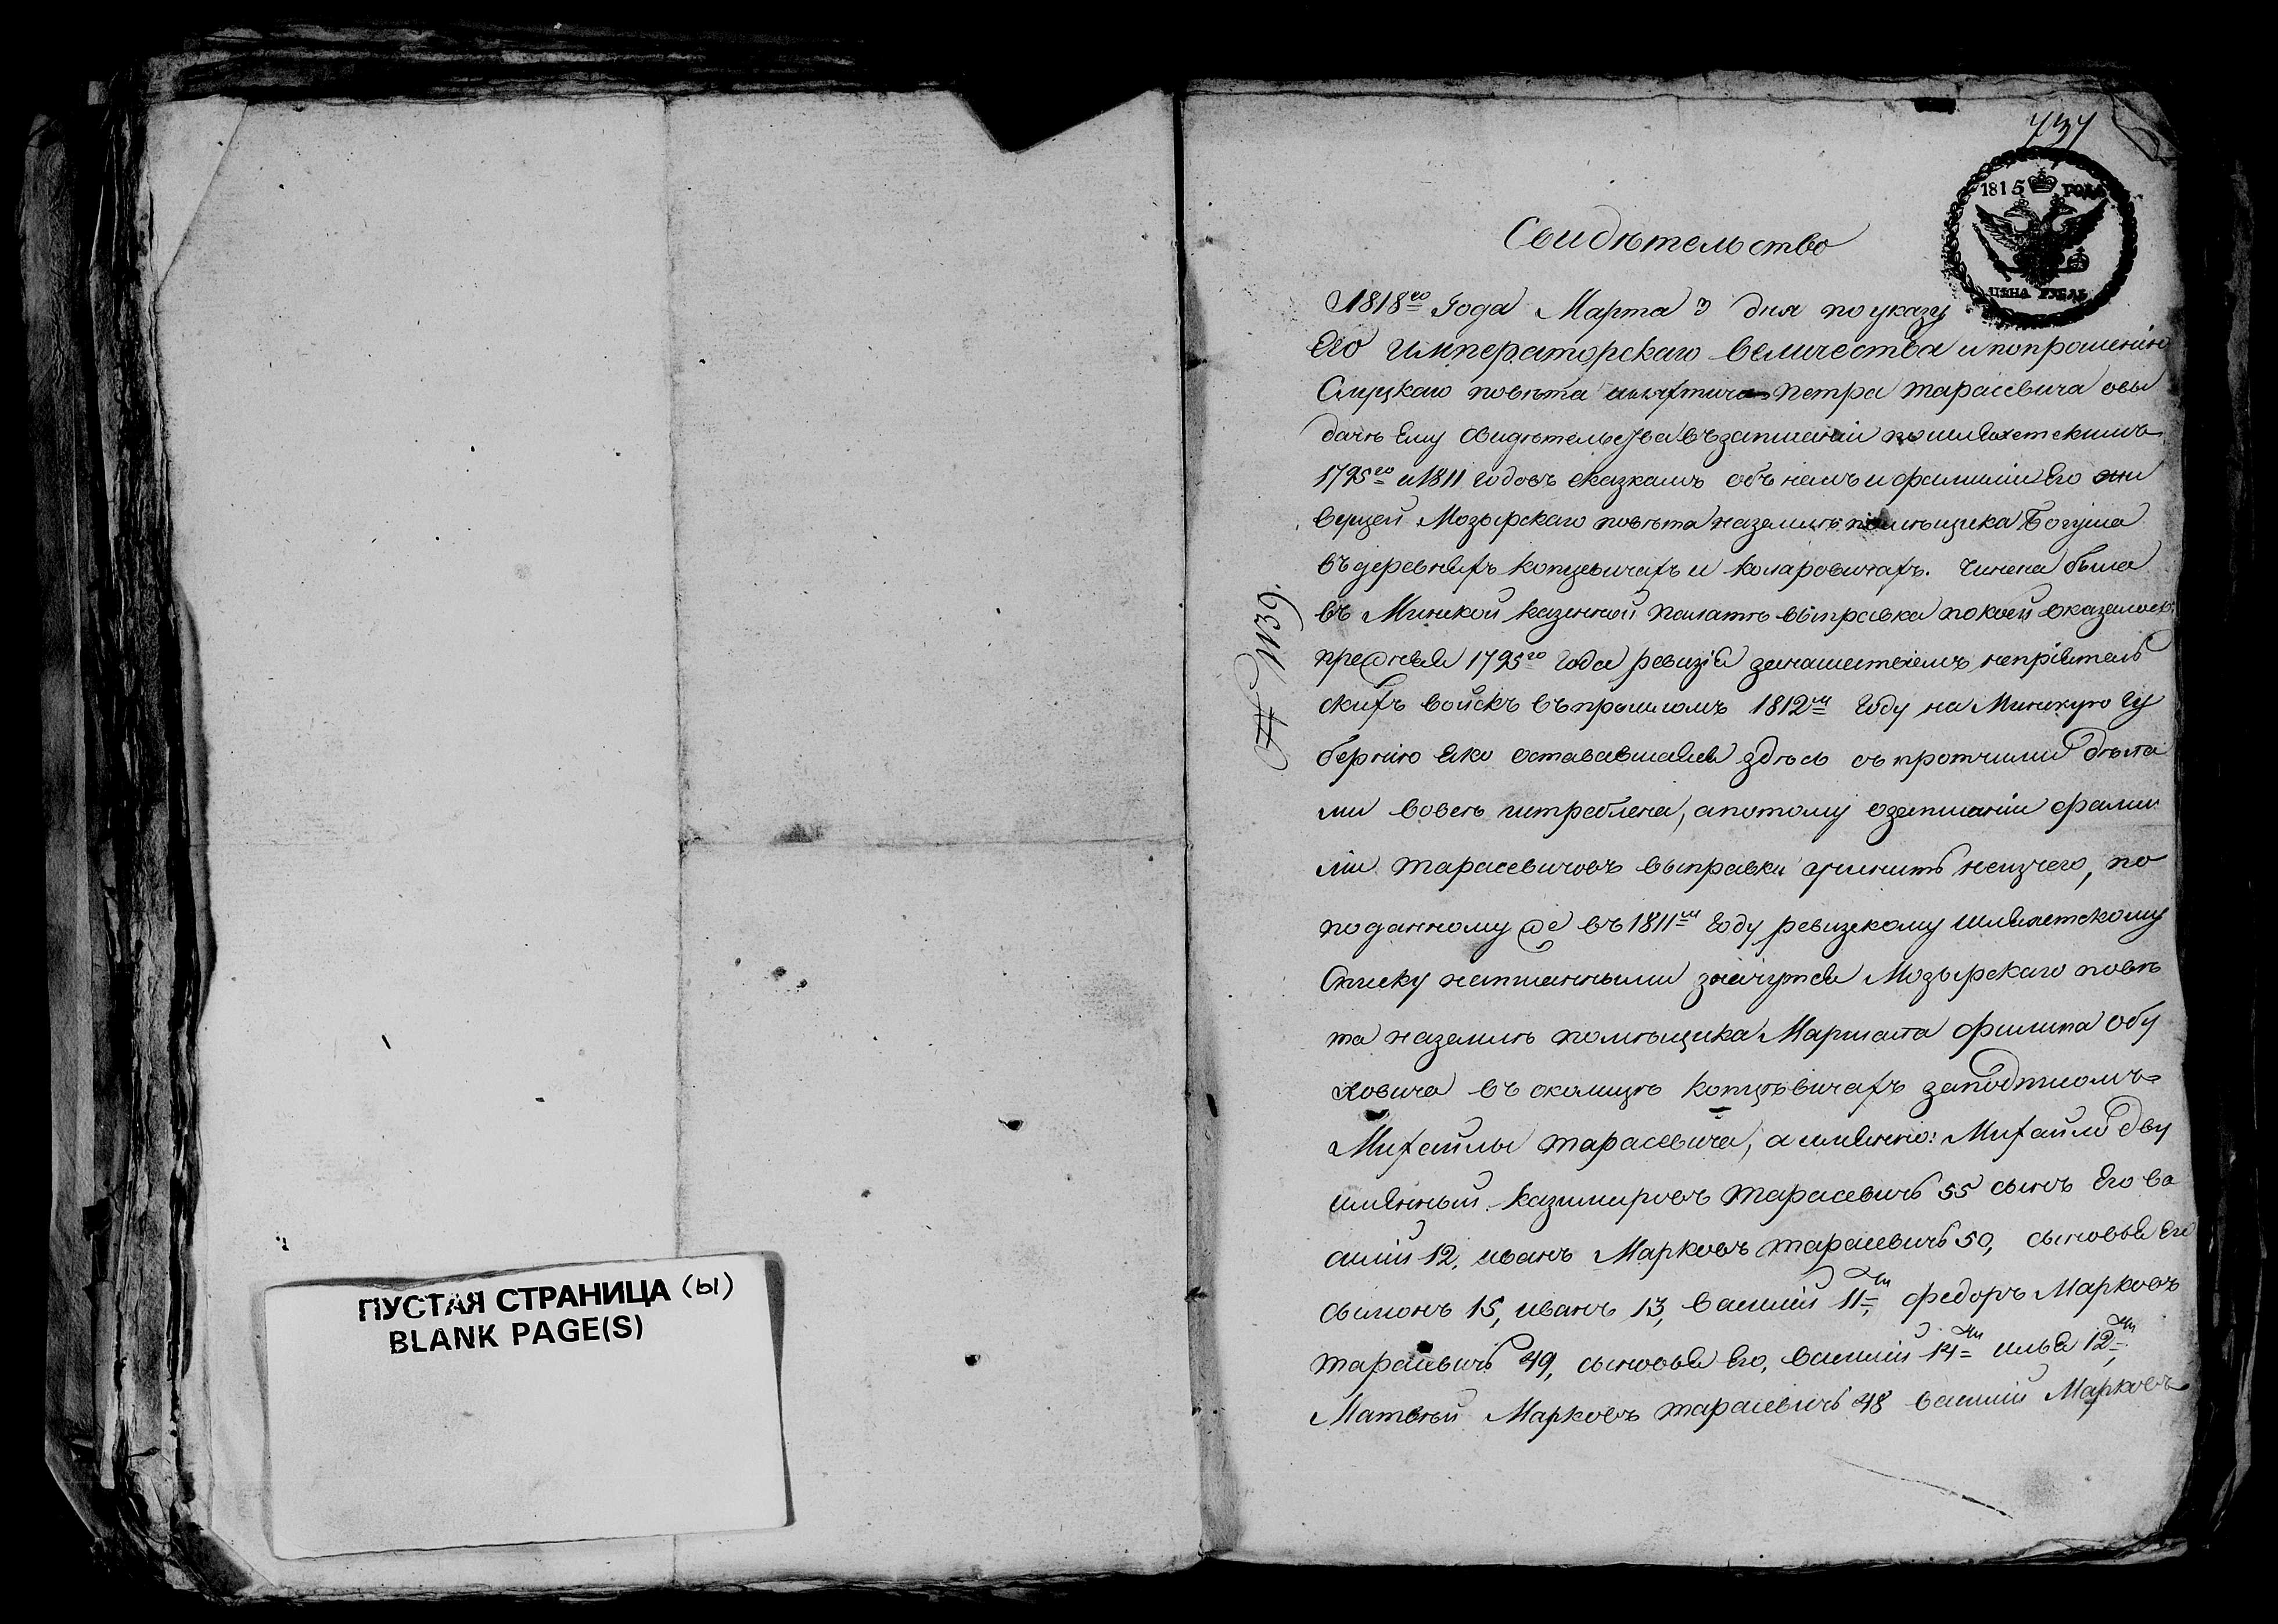 ПУСТАЯ СТРАНИЦА (ы)
BLANK PAGE(S)
737
1815 ГОДА
ЦѢНА РУБЛЬ
Свидѣтельство
1818го Года Марта 3 дня по указу
Его Императорскаго Величества и по прошению
Слуцкаго повѣта шляхтича Петра Тарасевича о вы
дачѣ Ему свидѣтельства въ записанiи по шляхетскимъ
1795го и 1811 годовъ сказкамъ объ немъ и фамилiи Его жи
вущей Мозырскаго повѣта на землѣ помѣщика Богуша
въ деревняхъ Копцевичахъ и Коларовичахъ. Чинена была
въ Минской казенной Палатѣ выправка по коей оказалось:
прежняя 1795го Года ревизiя занашествiемъ непрiятель
скихъ войскъ въ прошломъ 1812м Году на Минскую Гу
бернiю яко остававшаяся здѣсь съ протчими дѣла
ми вовсе истреблена, а потому о записанiи фами
лiи Тарасевичовъ выправки учинить не изчего, по
поданному же въ 1811м Году ревизскому шляхетскому
Списку написанными значутся Мозырскаго повѣ
та на землѣ помѣщика Маршала Филипа Обу
ховича въ околицѣ Копцѣвичахъ
Михайлы Тарасевича, а имянно: Михайло дву
имянный Казимировъ Тарасевичь 55 сынъ Его Ва
силiй 12, Иванъ Марковъ Тарасевичь 50, сыновья Его
Симонъ 15, Иванъ 13, Василiй 11ти, Федоръ Марковъ
Тарасевичь 49, сыновья Его, Василiй 14ти Илья 12ти,
Матвѣй Марковъ Тарасевичь 48 Василiй Марковъ
№ 1136.